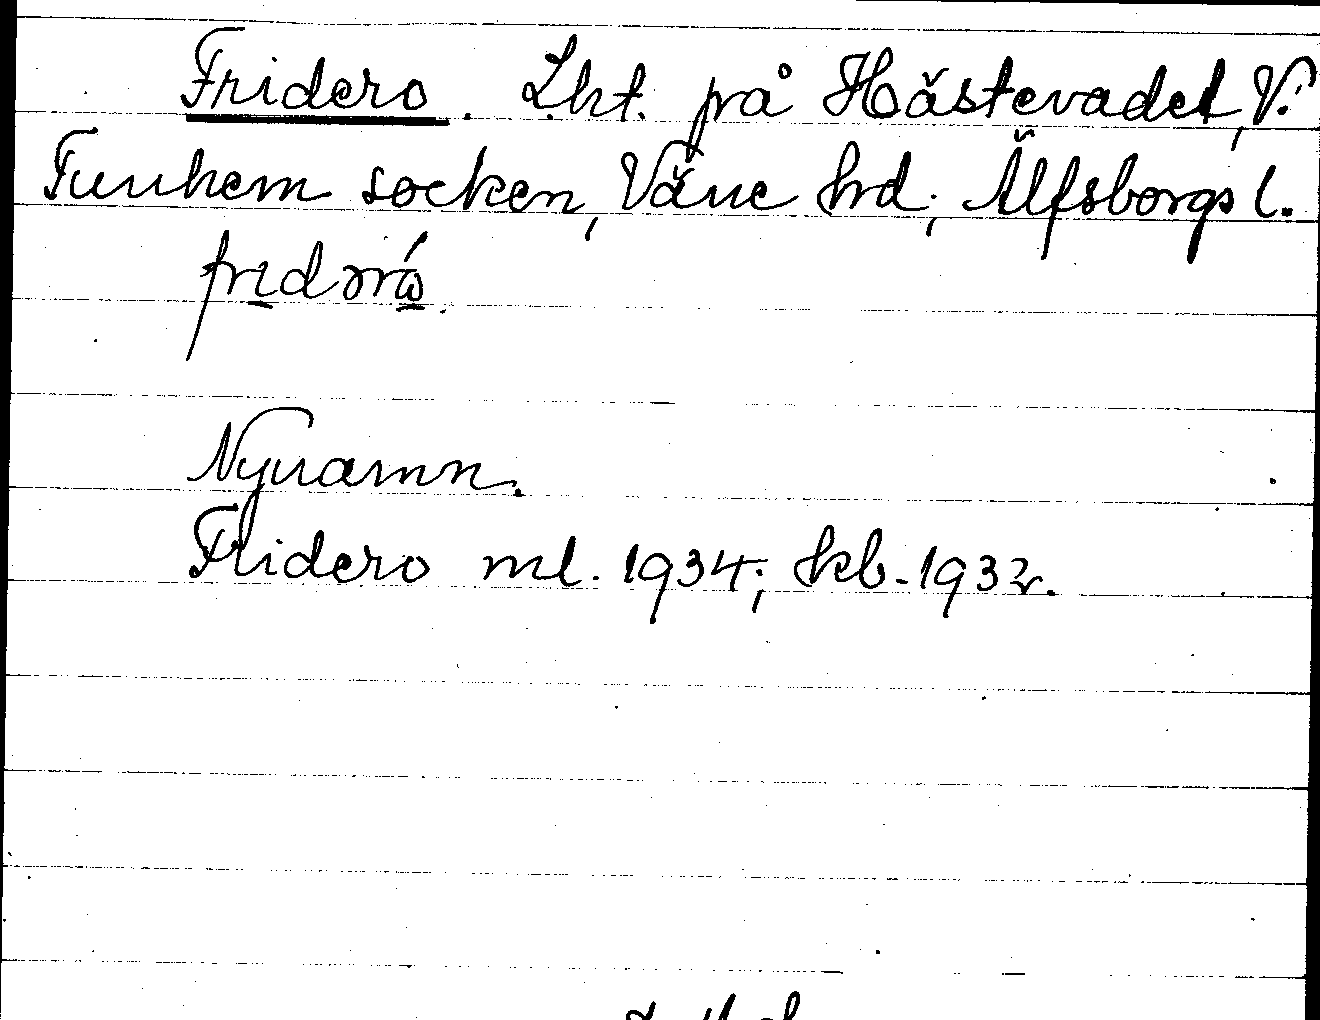 Fridero. Lht. på Hästevadet, V.
Tunhem socken, Väne hrd; Älfsborgs l.
Nynamn.
Fridero ml. 1934; kb. 1932.